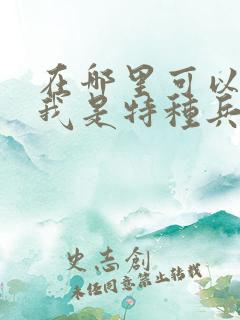 在哪里可以
我是特種兵
史志創
未经同意禁止转载